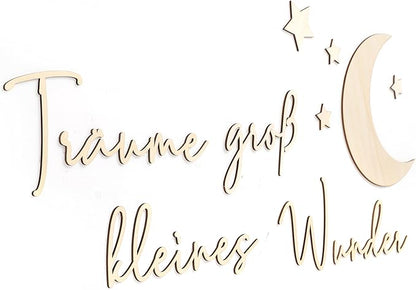 Träume groß
kleines Wunder